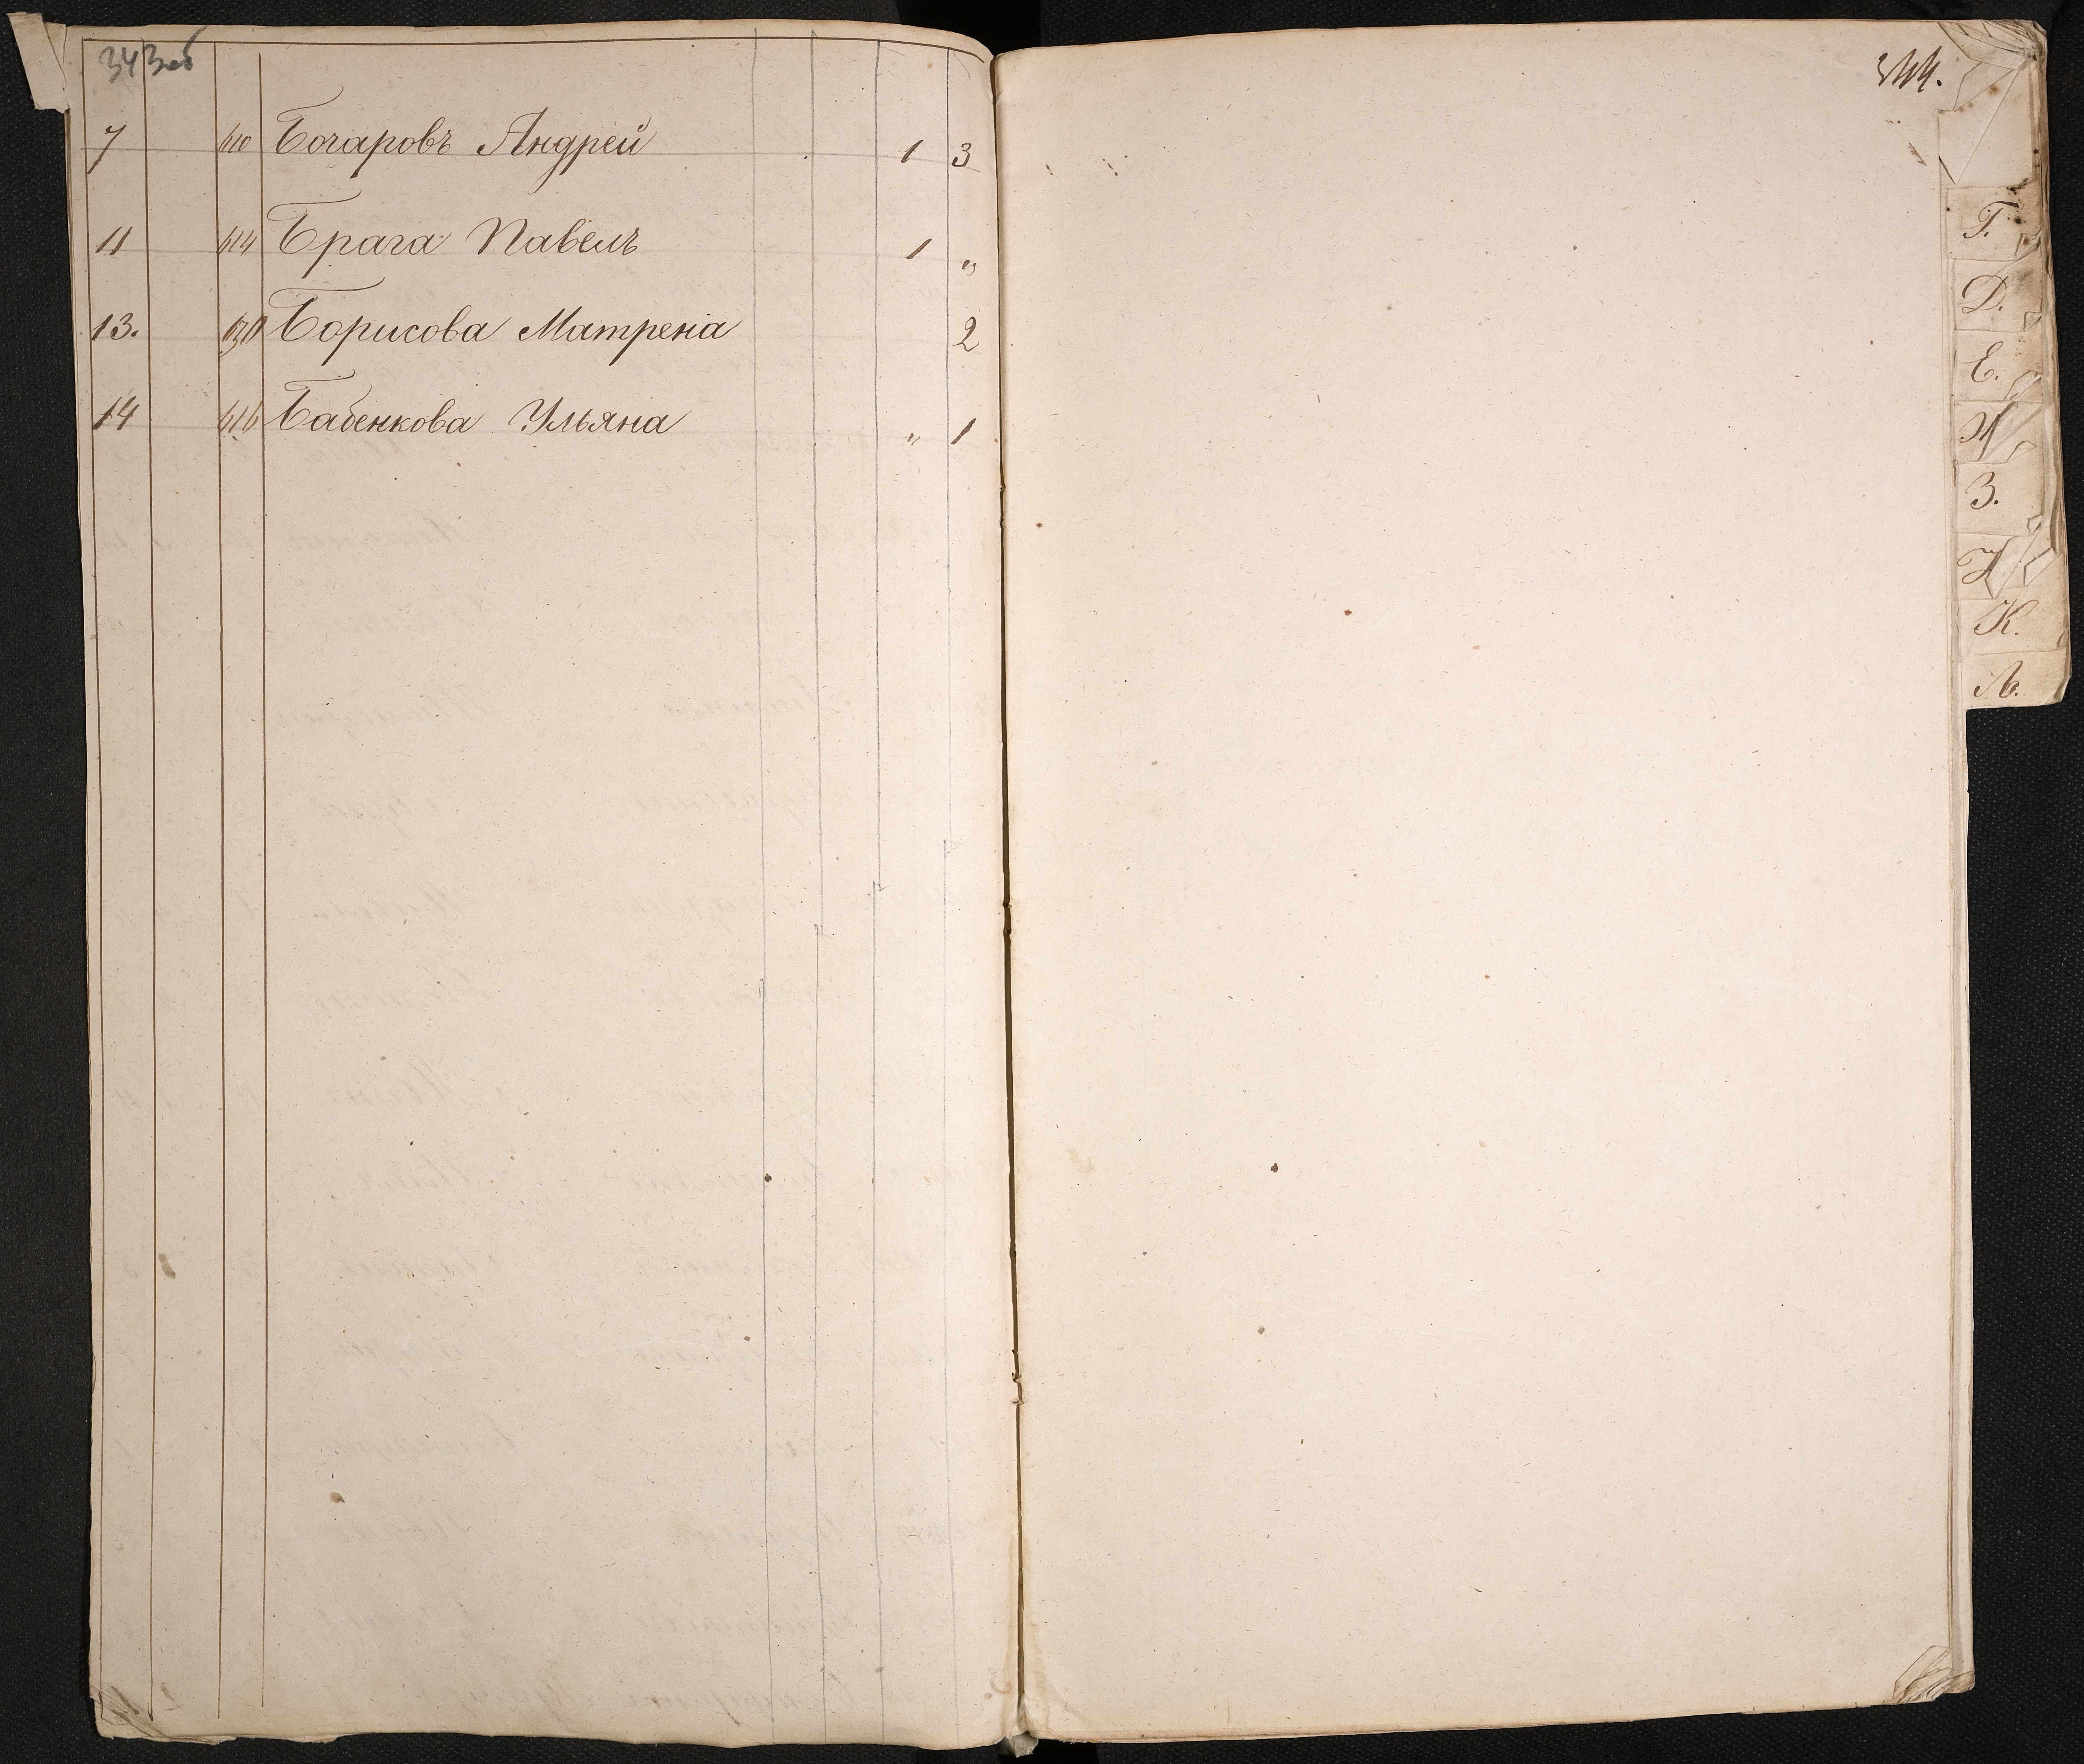 343об
7 610 Бочаровъ Андрей 1 3
11 614 Брага Павелъ 1 "
13. 630 Борисова Матрена 2
14 616 Бабенкова Ульяна " 1
344.
Г.
Д.
Е.
Ж
З.
И
К.
Л.